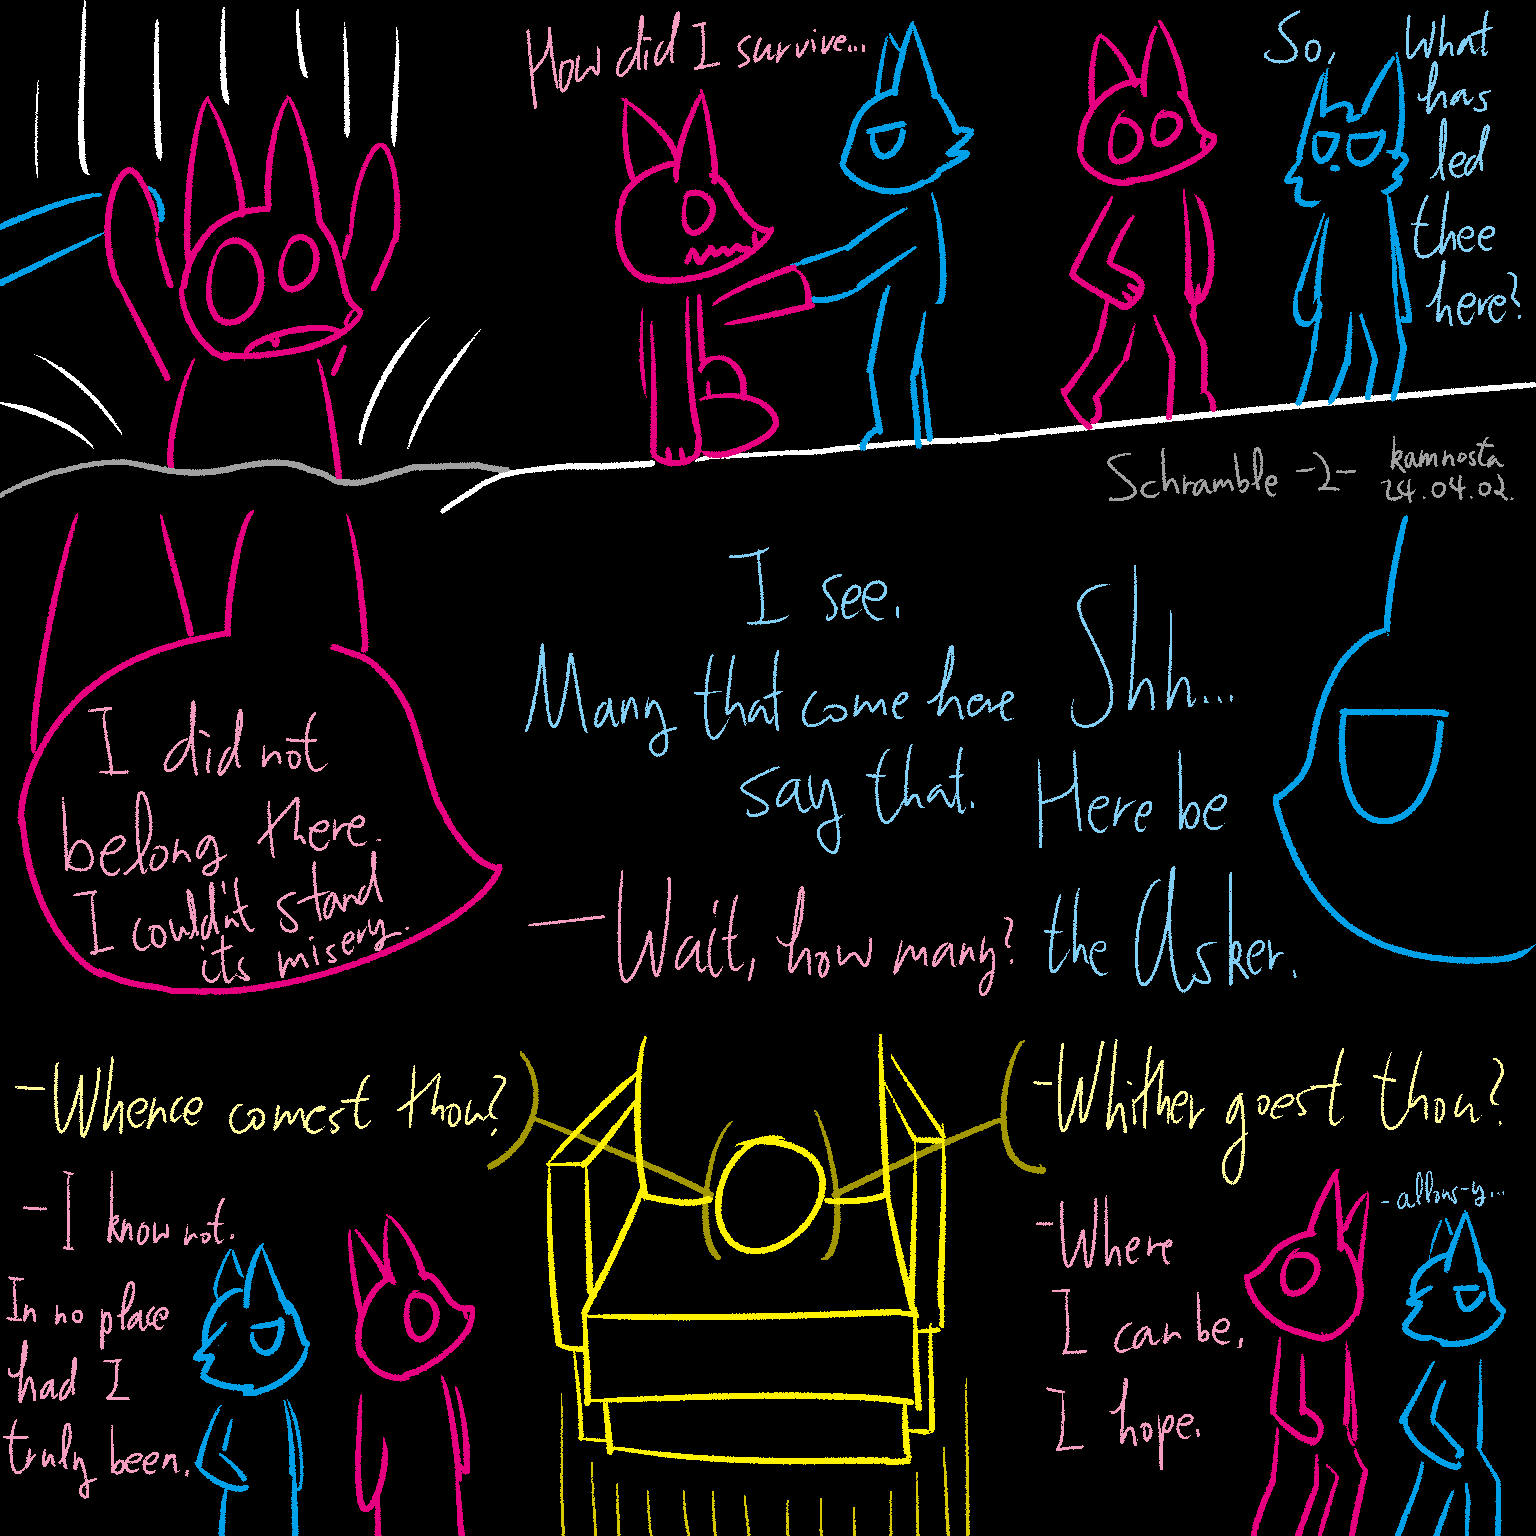 How did I survive...
So,
What
has
led
thee
here?
Schramble -2-
kamnosta
24.04.02.
I did not
belong there.
I couldn't stand
its misery.
I see.
Many that come here
say that.
— Wait, how many?
Shh...
Here be
the Asker.
-Whence comest thou?
-I know not.
In no place
had I
truly been.
-Whither goest thou?
-Where
I can be,
I hope.
-allons-y...